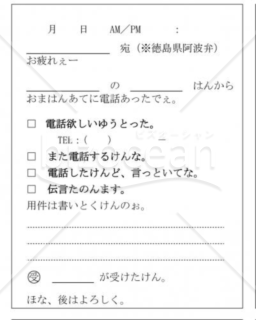 月　日　AM／PM　：
宛（※徳島県阿波弁）
お疲れぇー
の　はんから
おまはんあてに電話あったでぇ。
□ 電話欲しいゆうとった。
TEL：(　　)
□ また電話するけんな。
□ 電話したけんど、言っといてな。
□ 伝言たのんます。
用件は書いとくけんのぉ。
受　が受けたけん。
ほな、後はよろしく。